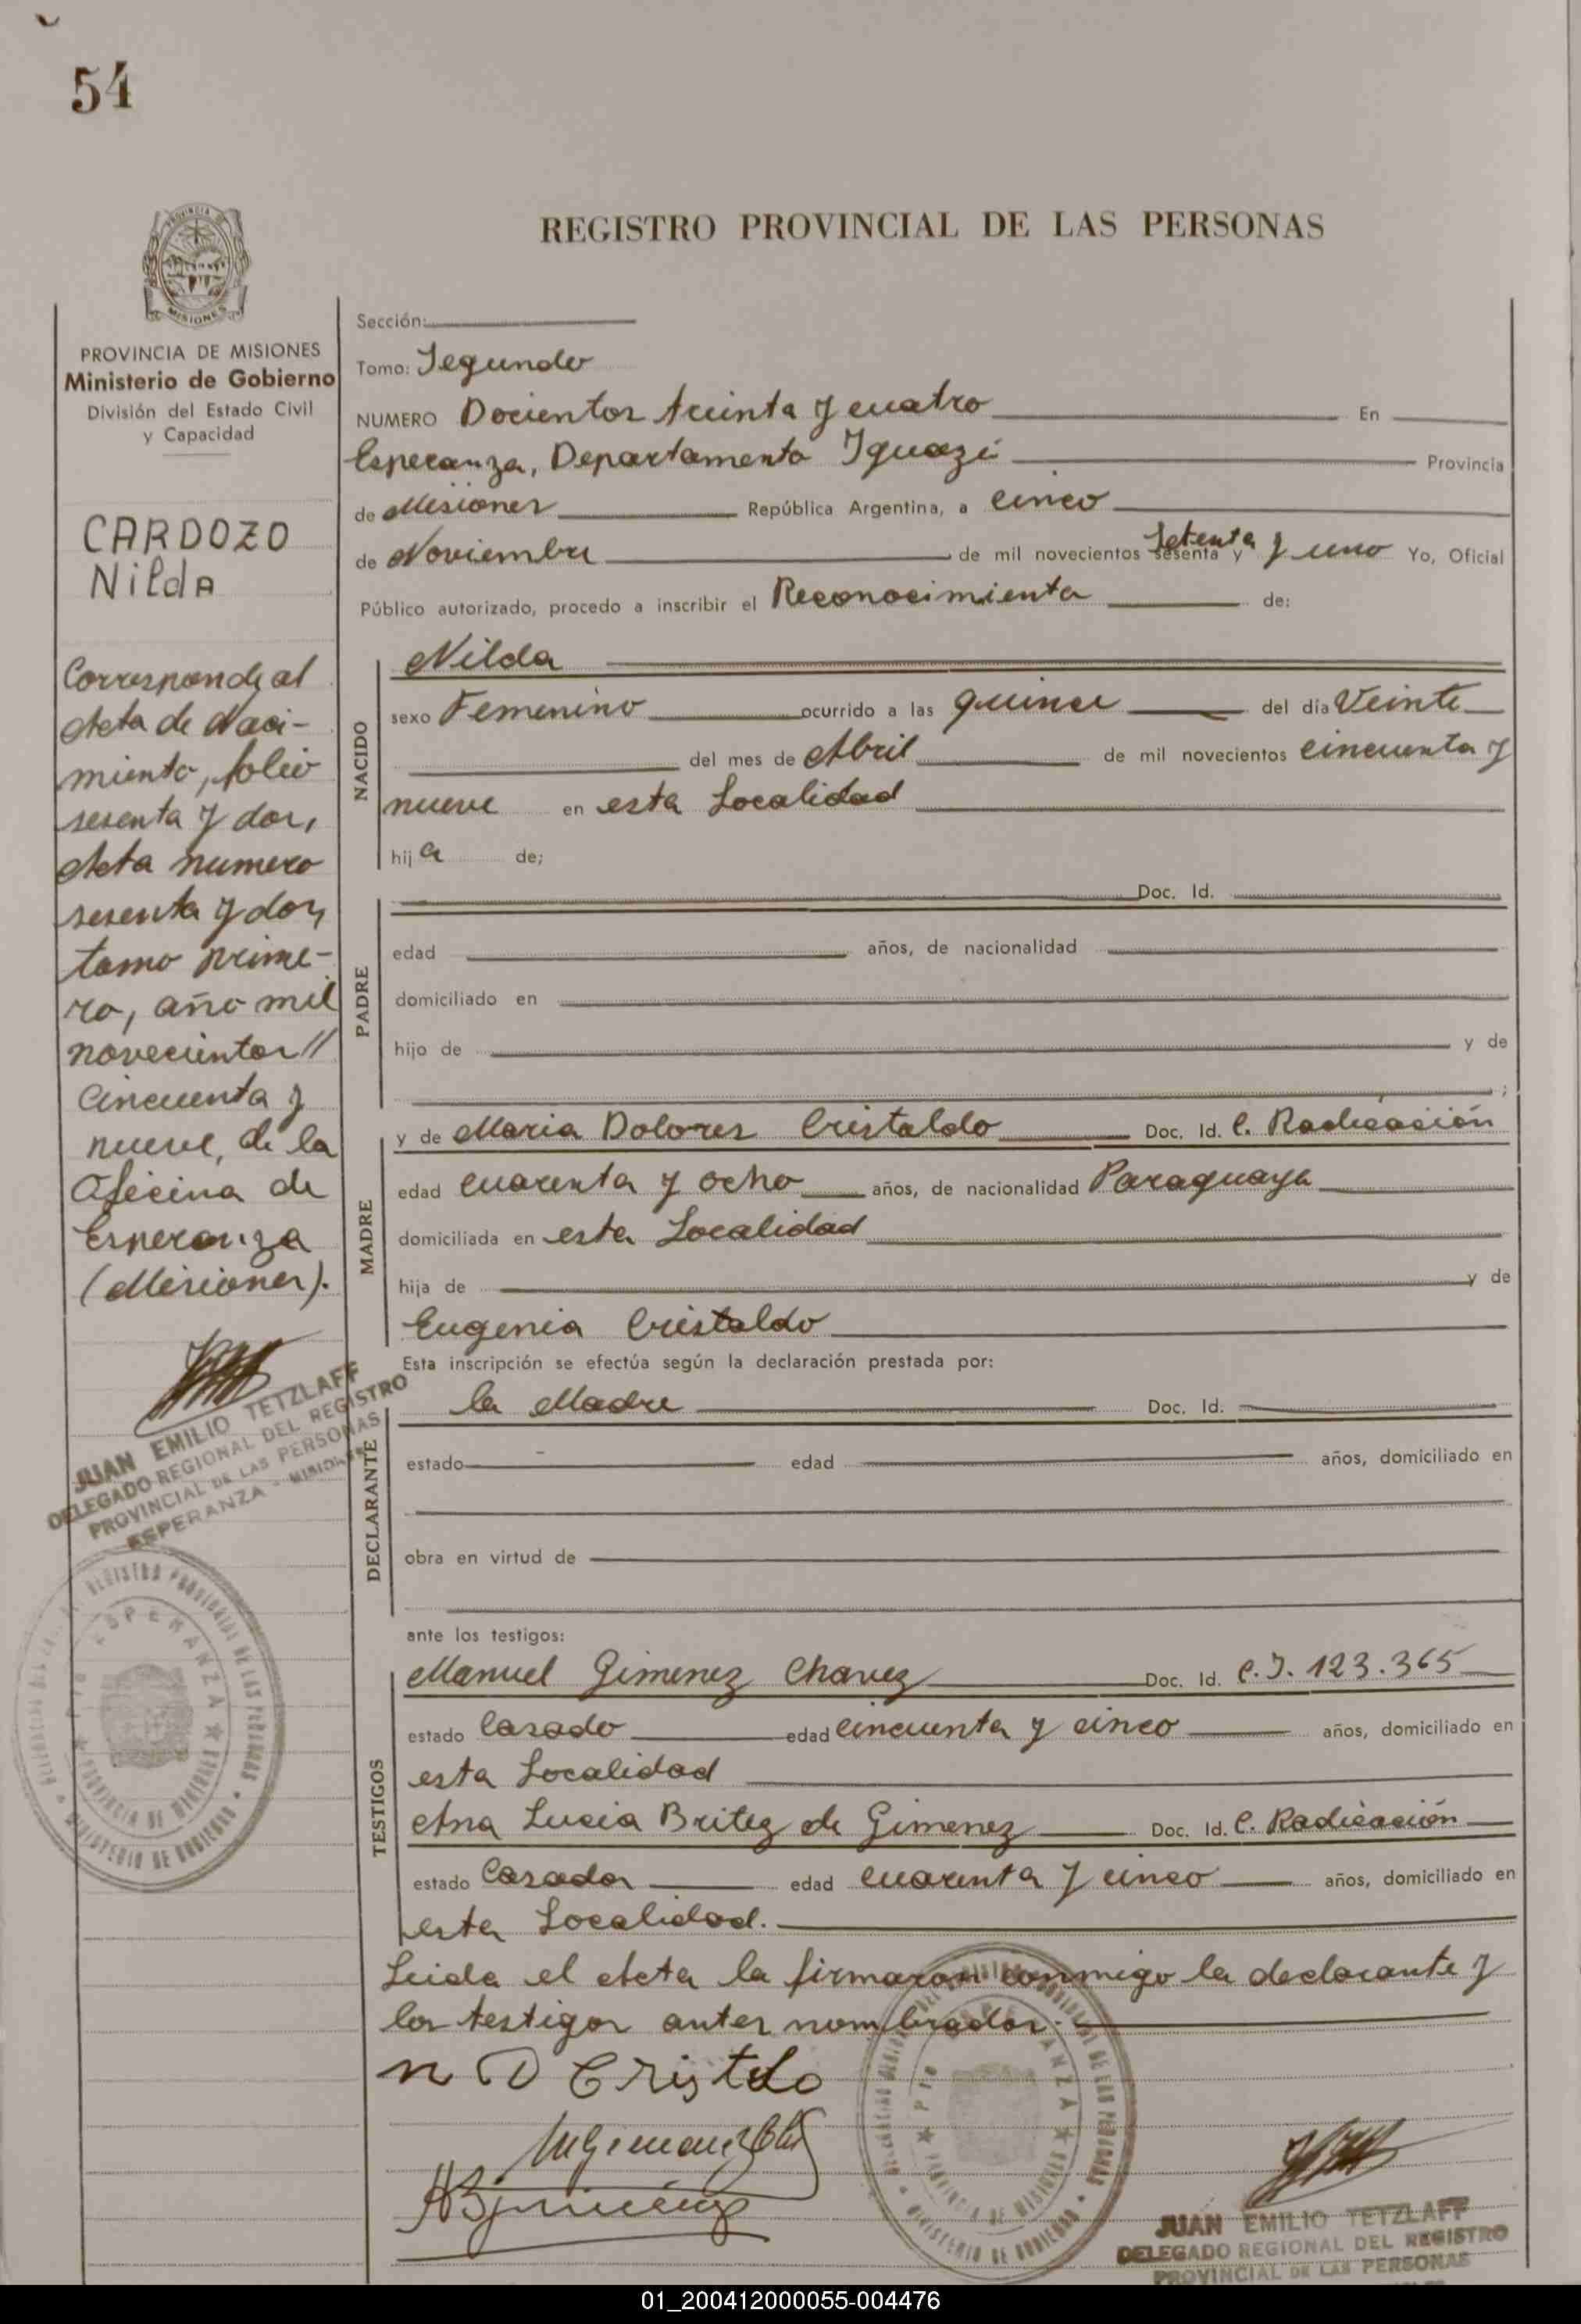 54
REGISTRO PROVINCIAL DE LAS PERSONAS
PROVINCIA DE MISIONES
Ministerio de Gobierno
División del Estado Civil
y Capacidad
CARDOZO
Nilda
Corresponde al
Acta de Naci-
miento, folio
sesenta y dos,
Acta numero
sesenta y dos,
tomo prime-
ro, año mil
novecientos //
Cincuenta y
nueve, de la
Oficina de
Esperanza
(Misiones).
JUAN EMILIO TETZLAFF
DELEGADO REGIONAL DEL REGISTRO
PROVINCIAL DE LAS PERSONAS
ESPERANZA - MISIONES
Sección:
Tomo: Segundo
NUMERO Docientos treinta y cuatro En
Esperanza, Departamento Iguazú Provincia
de Misiones República Argentina, a cinco
de Noviembre de mil novecientos sesenta y Setenta y uno Yo, Oficial
Público autorizado, procedo a inscribir el Reconocimiento de:
NACIDO
Nilda
sexo Femenino ocurrido a las quince del día Veinte
del mes de Abril de mil novecientos cincuenta y
nueve en esta Localidad
hij a de;
PADRE
Doc. Id.
edad años, de nacionalidad
domiciliado en
hijo de y de
;
MADRE
y de Maria Dolores Cristaldo Doc. Id. C. Radicación
edad cuarenta y ocho años, de nacionalidad Paraguaya
domiciliada en esta Localidad
hija de y de
Eugenia Cristaldo
Esta inscripción se efectúa según la declaración prestada por:
DECLARANTE
la Madre Doc. Id.
estado edad años, domiciliado en
obra en virtud de
ante los testigos:
TESTIGOS
Manuel Gimenez Chavez Doc. Id. C.I. 123.365
estado Casado edad cincuenta y cinco años, domiciliado en
esta Localidad
Ana Lucia Britez de Gimenez Doc. Id. C. Radicación
estado Casada edad cuarenta y cinco años, domiciliado en
esta Localidad.
Leida el Acta la firmaron conmigo la declarante y
los testigos antes nombrados.
JUAN EMILIO TETZLAFF
DELEGADO REGIONAL DEL REGISTRO
PROVINCIAL DE LAS PERSONAS
01_200412000055-004476